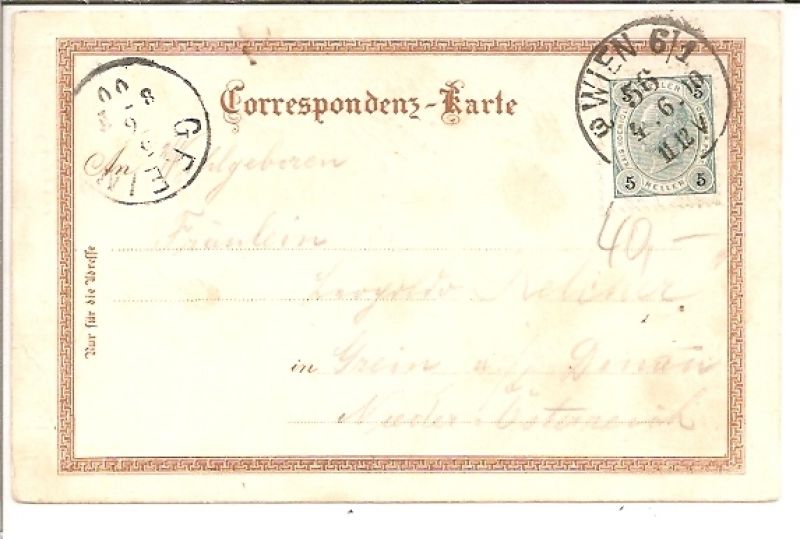 Correspondenz-Karte
WIEN 6/1
56
5 5
HELLER
GREIN
An Wohlgeboren
40,–
Fräulein
Leopoldo
in Grein a/d Donau
Nieder-Österreich
Nur für die Adresse